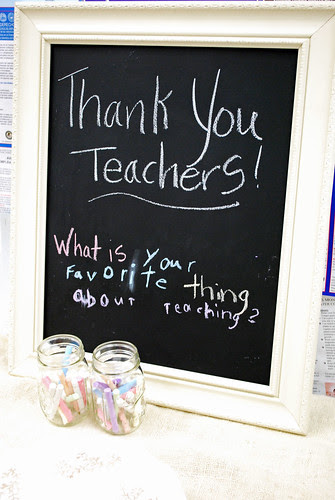 Thank You
Teachers!
What is your
favorite thing
about teaching?